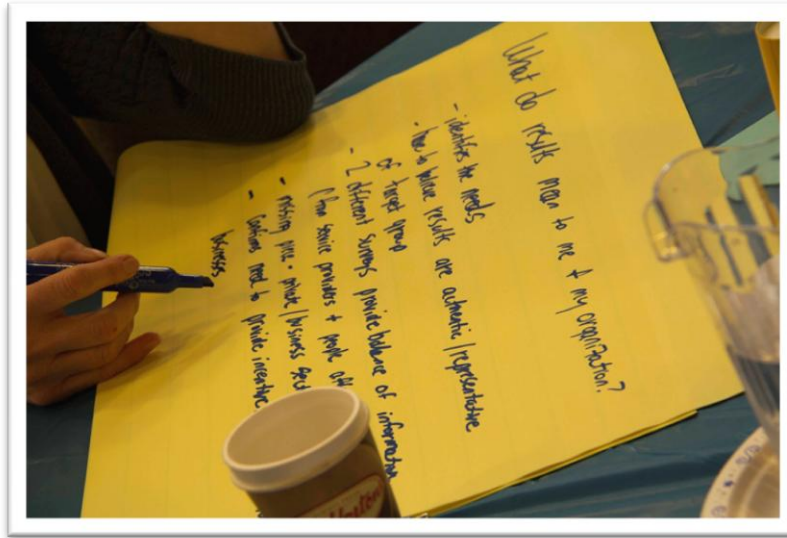 What do results mean to me + my organization?
- identifies the needs
- how to believe results are authentic/representative
of target group
- 2 different surveys provide balance of information
(from service providers + people
- missing piece - private/business
- confirms need to provide incentive
businesses